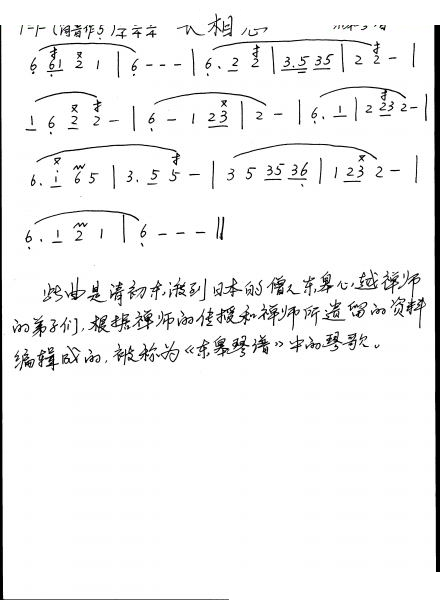 1-1- (同音作5) 长相思
6 61 2 1 | 6 - - - | 6. 2 2 | 3.5 35 | 2 2 - |
1 6 2 2 - | 6 - 1 23 | 2 - | 6. 1 | 2 23 2 - |
6. i 6 5 | 3. 5 5 - | 3 5 35 36 | 1 23 2 - |
6. 1 2 1 | 6 - - - ||
此曲是清初东渡到日本的僧人东皋心越禅师
的弟子们,根据禅师的传授和禅师所遗留的资料
编辑成的,被称为《东皋琴谱》中的琴歌。